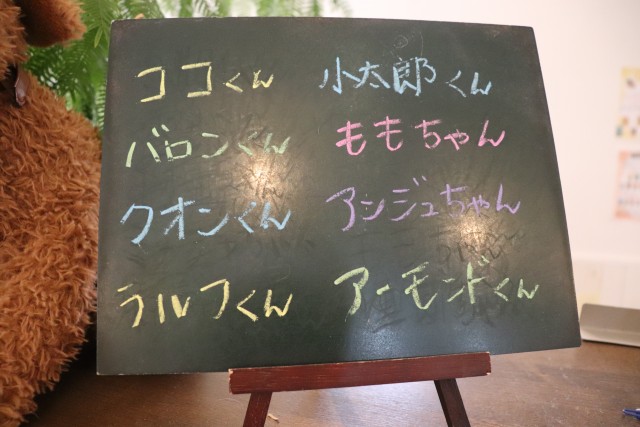 ココくん 小太郎くん
バロンくん ももちゃん
クオンくん アンジュちゃん
ラルフくん アーモンドくん